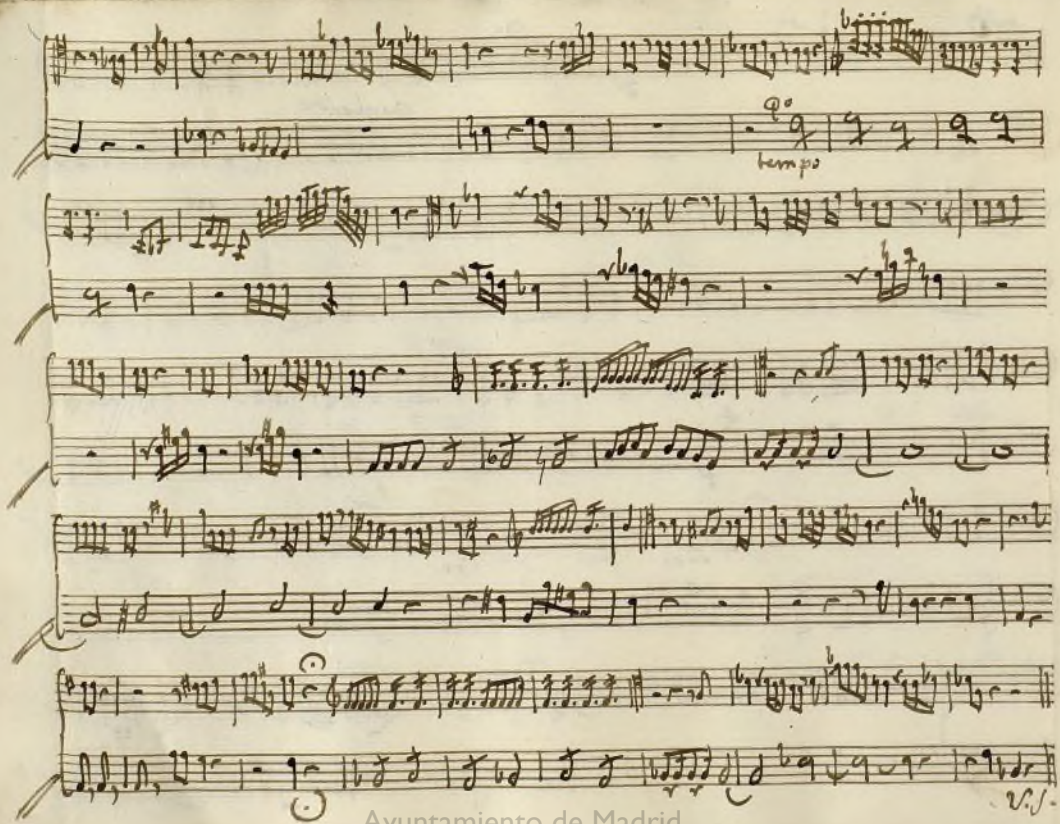 tempo
V. S.
Ayuntamiento de Madrid